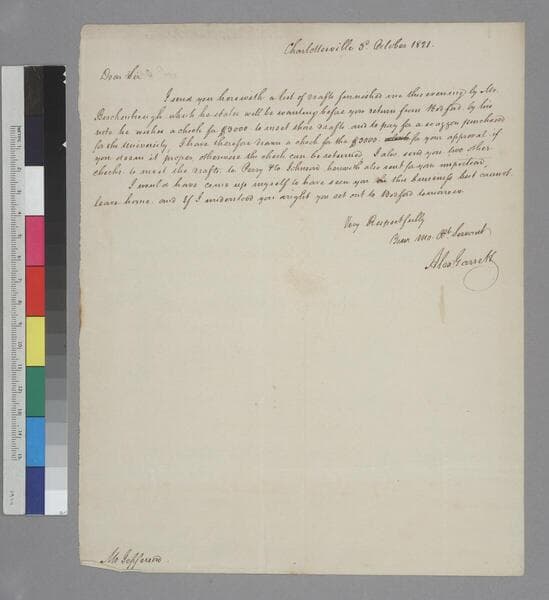 Charlottesville 3d October 1821.
Dear Sir
I send you herewith a list of drafts furnished me this evening by Mr.
Brockenbrough which he states will be wanting before you return from Bedford. by his
note he wishes a check for $3000 to meet those drafts and to pay for a waggon purchased
for the University, I have therefore drawn a check for the $3000 for your approval if
you deem it proper, otherwise the check can be returned. I also send you two other
checks to meet the drafts, to Perry & Johnson herewith also sent for your inspection.
I would have come up myself to have seen you on this business but cannot
leave home. and If I understood you wright you set out to Bedford tomorrow.
Very Respectfully
Your Mo. Obt. Servant
Alex Garrett
Mr. Jefferson